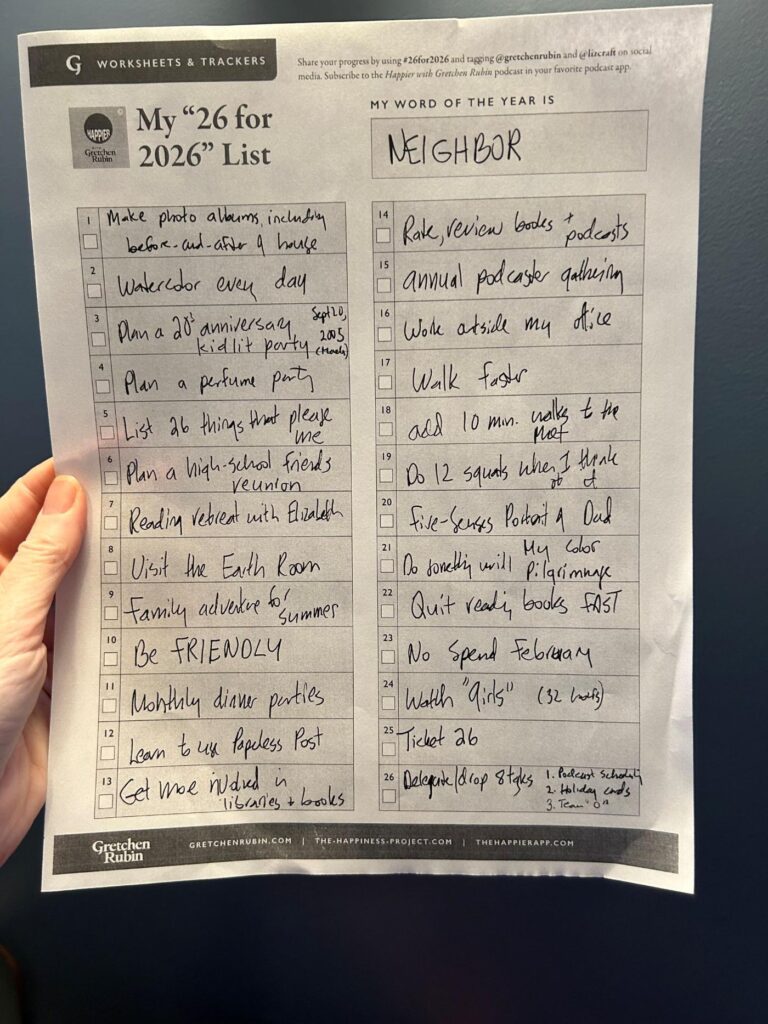 G WORKSHEETS & TRACKERS
Share your progress by using #26for2026 and tagging @gretchenrubin and @lizcraft on social
media. Subscribe to the Happier with Gretchen Rubin podcast in your favorite podcast app.
HAPPIER
Gretchen
Rubin
My "26 for
2026" List
MY WORD OF THE YEAR IS
NEIGHBOR
1 Make photo albums, including
before-and-after of house
2 Watercolor every day
3 Plan a 20th anniversary Sept 20,
kidlit party 2005
4 Plan a perfume party
5 List 26 things that please
me
6 Plan a high-school friends
reunion
7 Reading retreat with Elizabeth
8 Visit the Earth Room
9 Family adventure for
summer
10 Be FRIENDLY
11 Monthly dinner parties
12 Learn to use Paperless Post
13 Get more involved in
libraries + books
14 Rate, review books +
podcasts
15 annual podcaster gathering
16 Work outside my office
17 Walk faster
18 add 10 min. walks to the
19 Do 12 squats when I think
of it
20 Five-Senses Portrait of Dad
21 Do something with My Color
Pilgrimage
22 Quit reading books FAST
23 No Spend February
24 Watch "Girls" (32 hours)
25 Ticket 26
26 Delegate/drop 8 tasks 1. Podcast scheduling
2. Holiday cards
3. Team "O"
Gretchen
Rubin
GRETCHENRUBIN.COM | THE-HAPPINESS-PROJECT.COM | THEHAPPIERAPP.COM